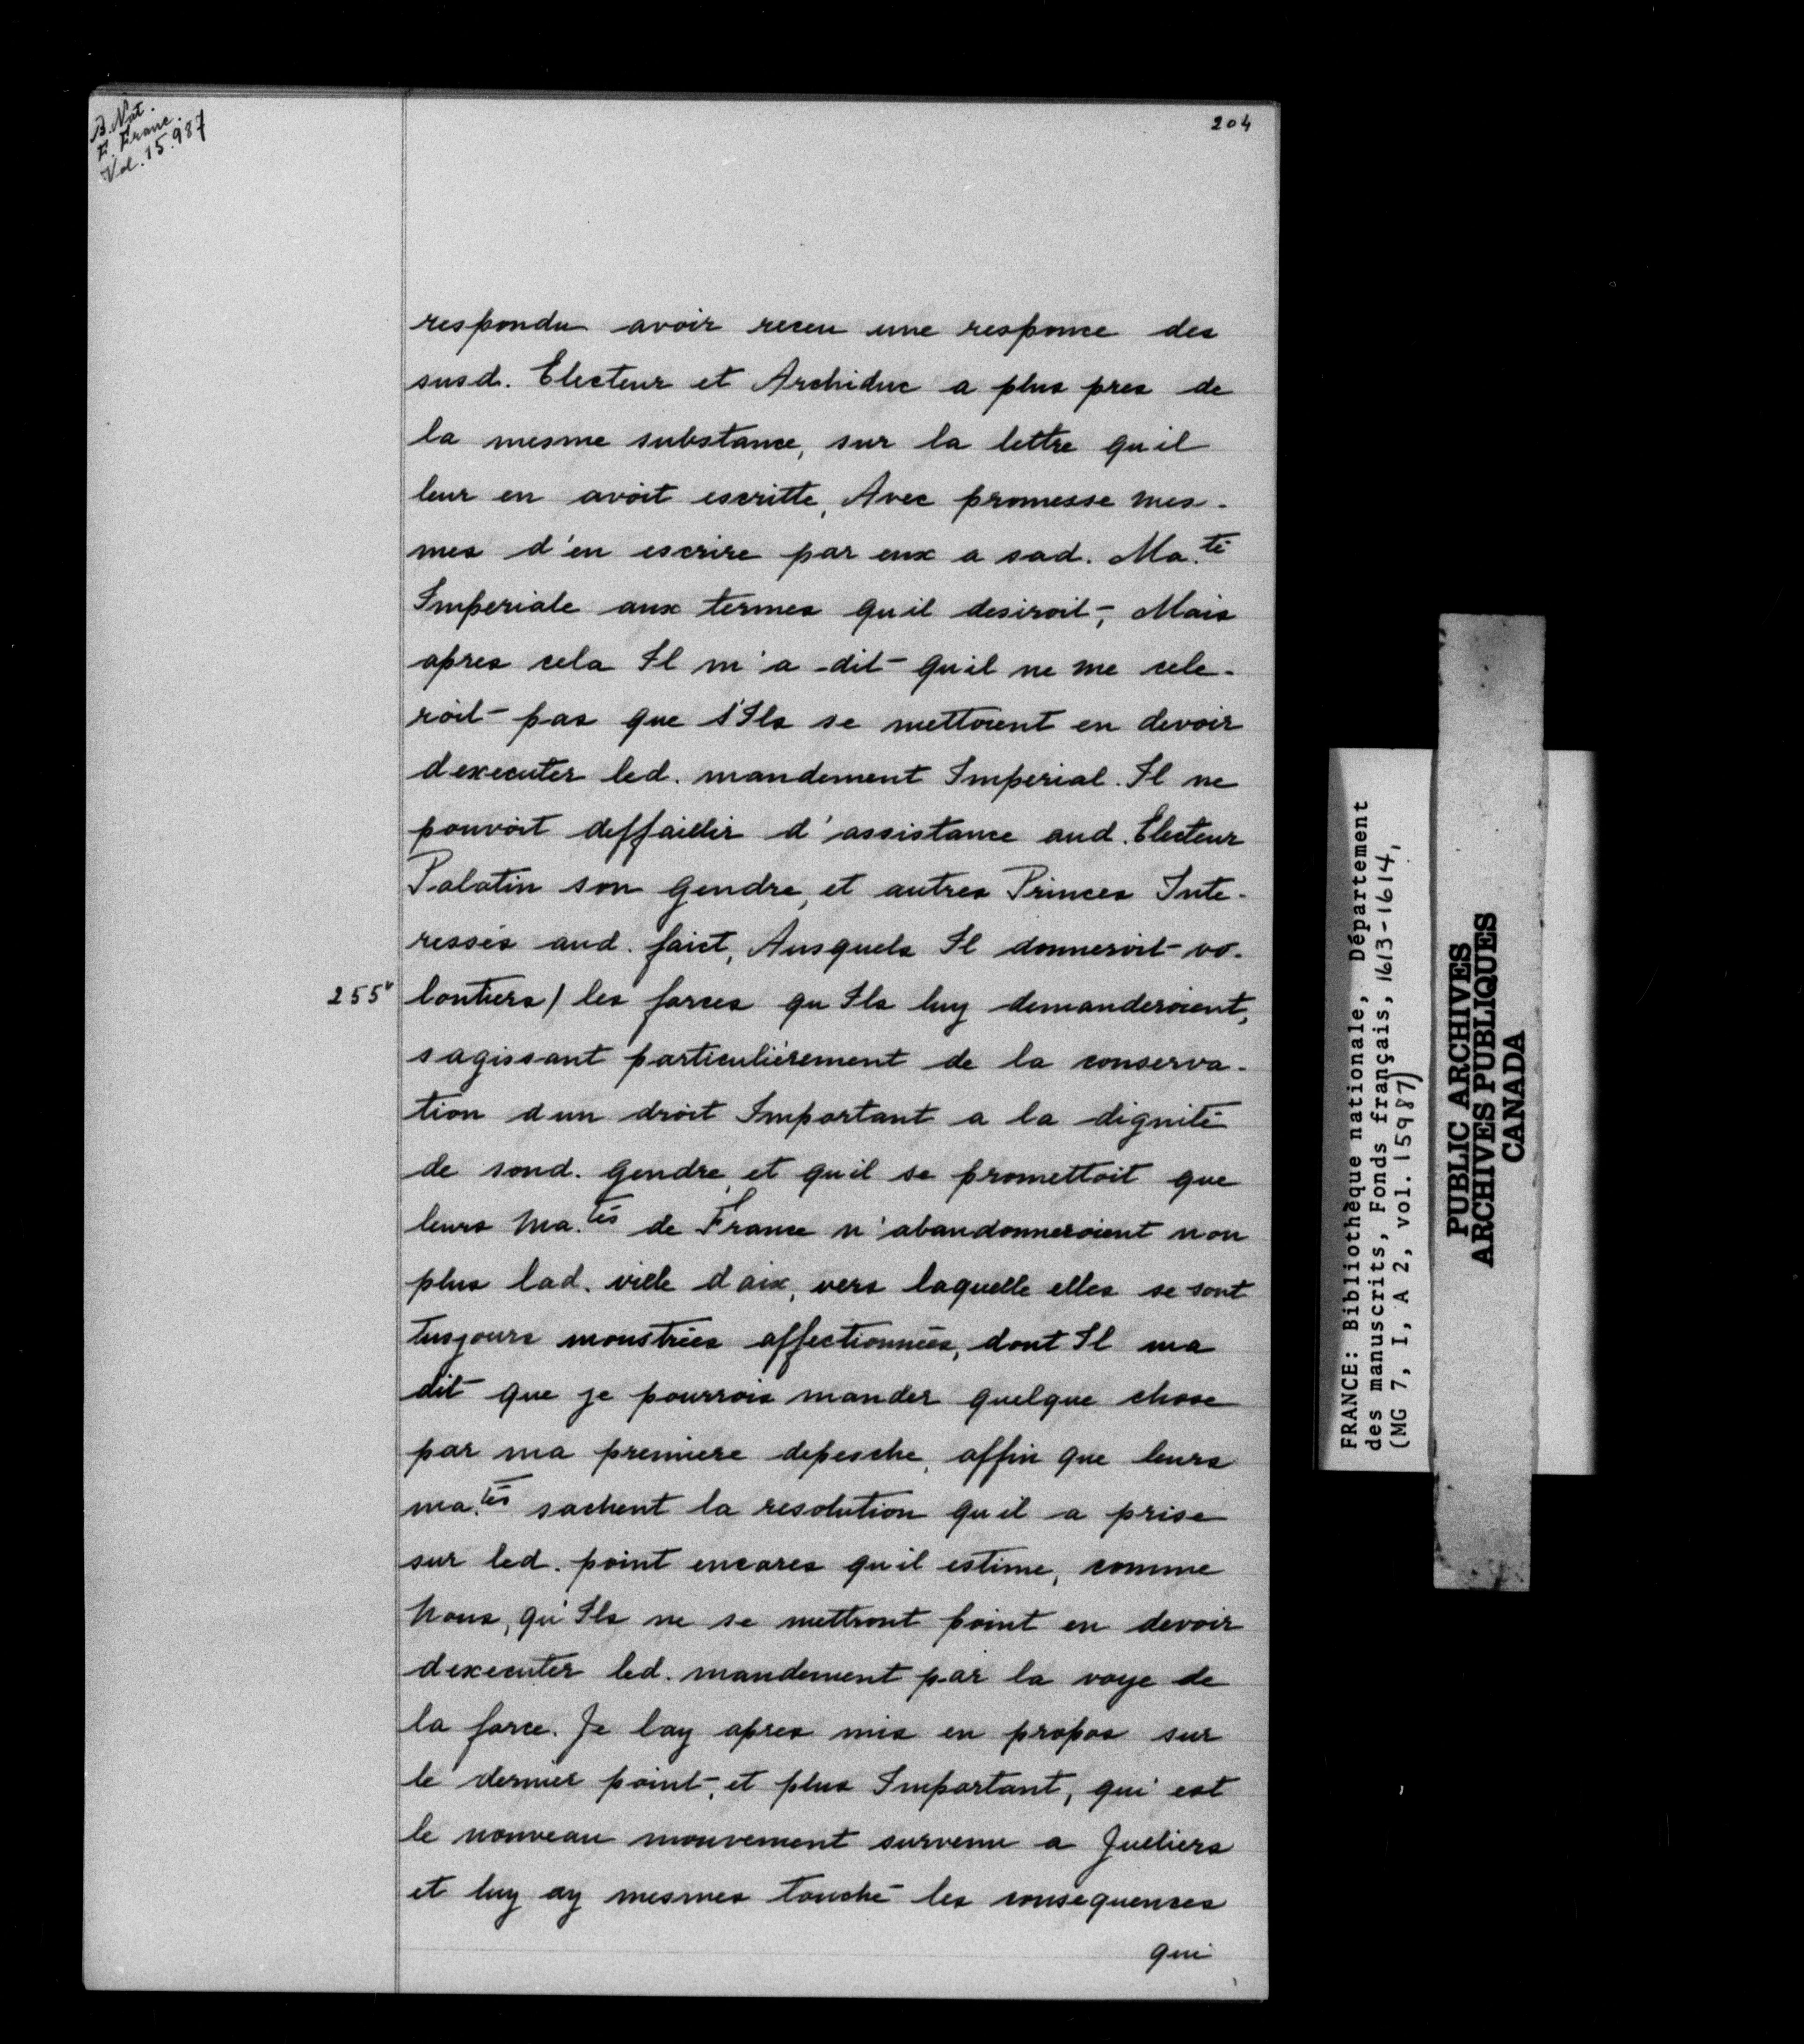 B. Nat.
F. Franc.
Vol. 15.987
204
respondu avoir receu une responce des
susd. Electeur et Archiduc a plus pres de
la mesme substance, sur la lettre qu'il
leur en avoit escritte, Avec promesse mes-
mes d'en escrire par eux a sad. Ma.té
Imperiale aux termes qu'il desiroit, Mais
apres cela Il m'a dit qu'il ne me cele-
roit pas que s'Ils se mettoient en devoir
dexecuter led. mandement Imperial. Il ne
pouvoit deffaillir d'assistance aud. Electeur
Palatin son gendre, et autres Princes Inte-
ressés aud. faict, Ausquels Il donneroit vo-
255v lontiers / les forces qu Ils luy demanderoient,
sagissant particulièrement de la conserva-
tion dun droit Important a la dignité
de sond. gendre, et qu'il se promettoit que
leurs Ma.tés de France n'abandonneroient non
plus lad. ville daix, vers laquelle elles se sont
tusjours monstrées affectionnées, dont Il ma
dit que je pourrois mander quelque chose
par ma premiere depesche, affin que leurs
ma.tés sachent la resolution qu'il a prise
sur led. point encores qu'il estime, comme
Nous, qu'Ils ne se mettront point en devoir
dexecuter led. mandement par la voye de
la force. Je lay apres mis en propos sur
le dernier point, et plus Important, qui est
le nouveau mouvement survenu a Juelliers
et luy ay mesmes touché les consequences
qui
FRANCE: Bibliothèque nationale, Département
des manuscrits, Fonds français, 1613-1614,
(MG 7, I, A 2, vol. 15987)
PUBLIC ARCHIVES
ARCHIVES PUBLIQUES
CANADA